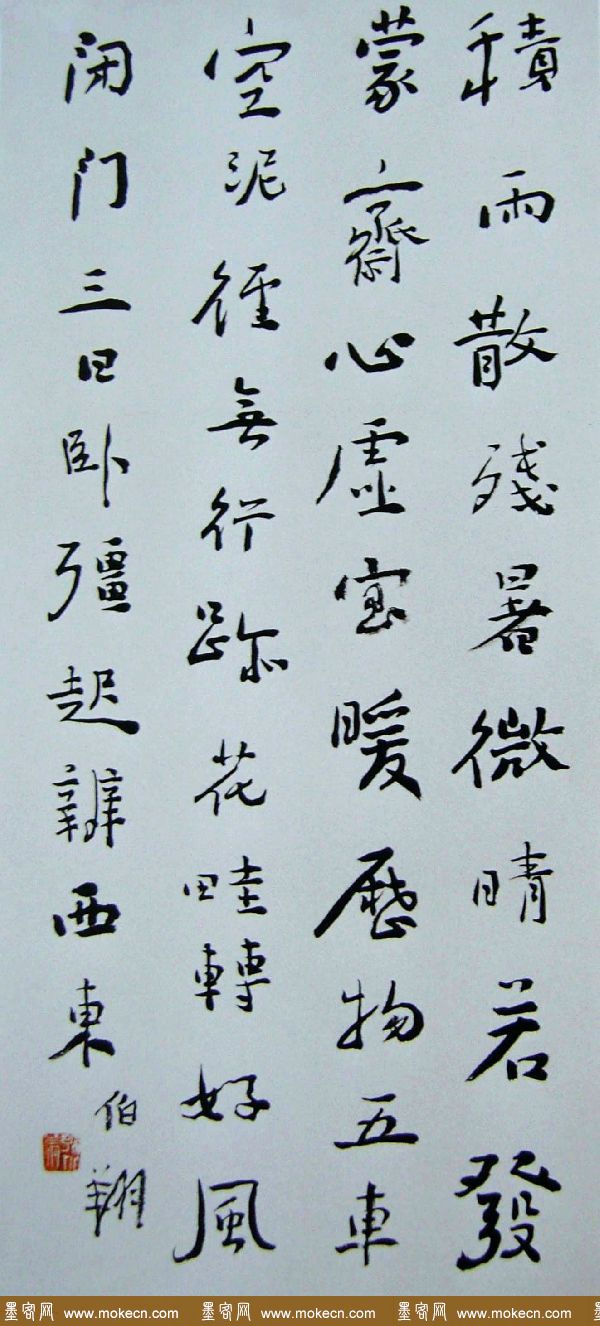 積雨散殘暑微晴若發
蒙齋心虛室暖歷物五車
空泥徑無行跡花畦轉好風
闭门三日卧彊起辨西東
伯翔
墨客网 www.mokecn.com 墨客网 www.mokecn.com 墨客网 www.mokecn.com